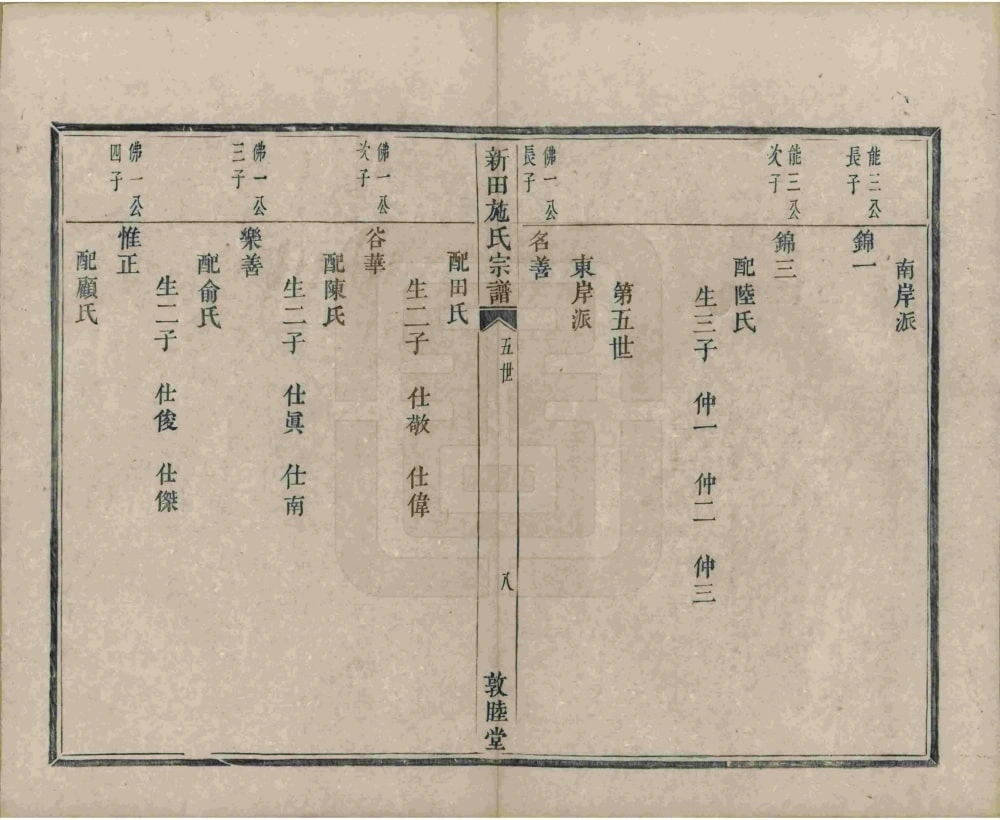 南岸派
能三公
長子
錦一
能三公
次子
錦三
配陸氏
生三子 仲一 仲二 仲三
第五世
東岸派
佛一公
長子
名善
新田施氏宗譜 五世 八 敦睦堂
配田氏
生二子 仕敬 仕偉
佛一公
次子
谷華
配陳氏
生二子 仕眞 仕南
佛一公
三子
樂善
配俞氏
生二子 仕俊 仕傑
佛一公
四子
惟正
配顧氏